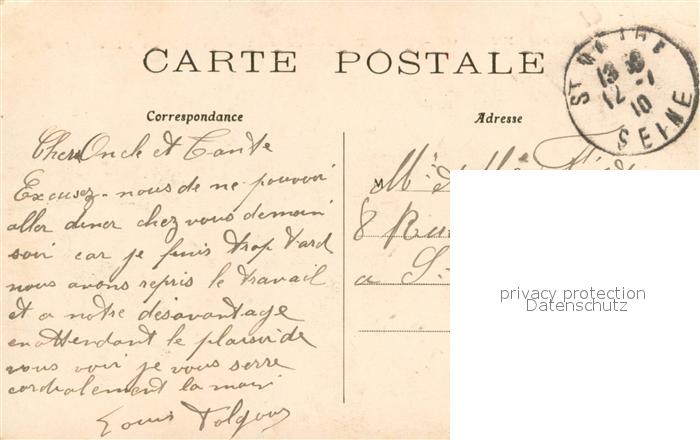 CARTE POSTALE
ST MAUR
13
12 -1
10
SEINE
Correspondance
Adresse
Chers Oncle et Tante
Excusez-nous de ne pouvoir
aller diner chez vous demain
soir car je finis trop tard
nous avons repris le travail
et a notre désavantage
en attendant le plaisir de
vous voir je vous serre
cordialement la main
Louis
M
8 Rue
a S
privacy protection
Datenschutz